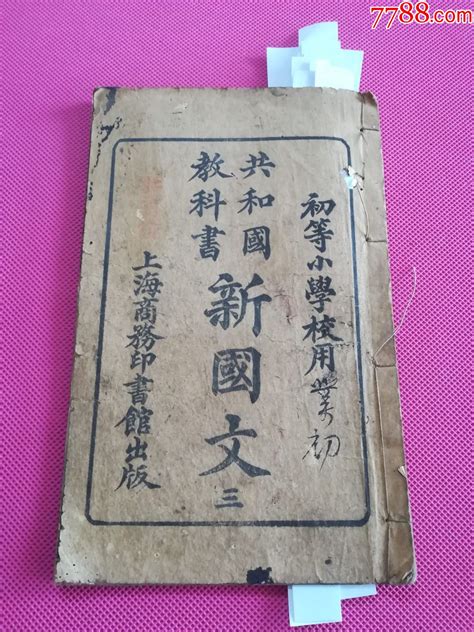 7788.com
初等小學校用
初
共和國
教科書
新國文
三
上海商務印書館出版